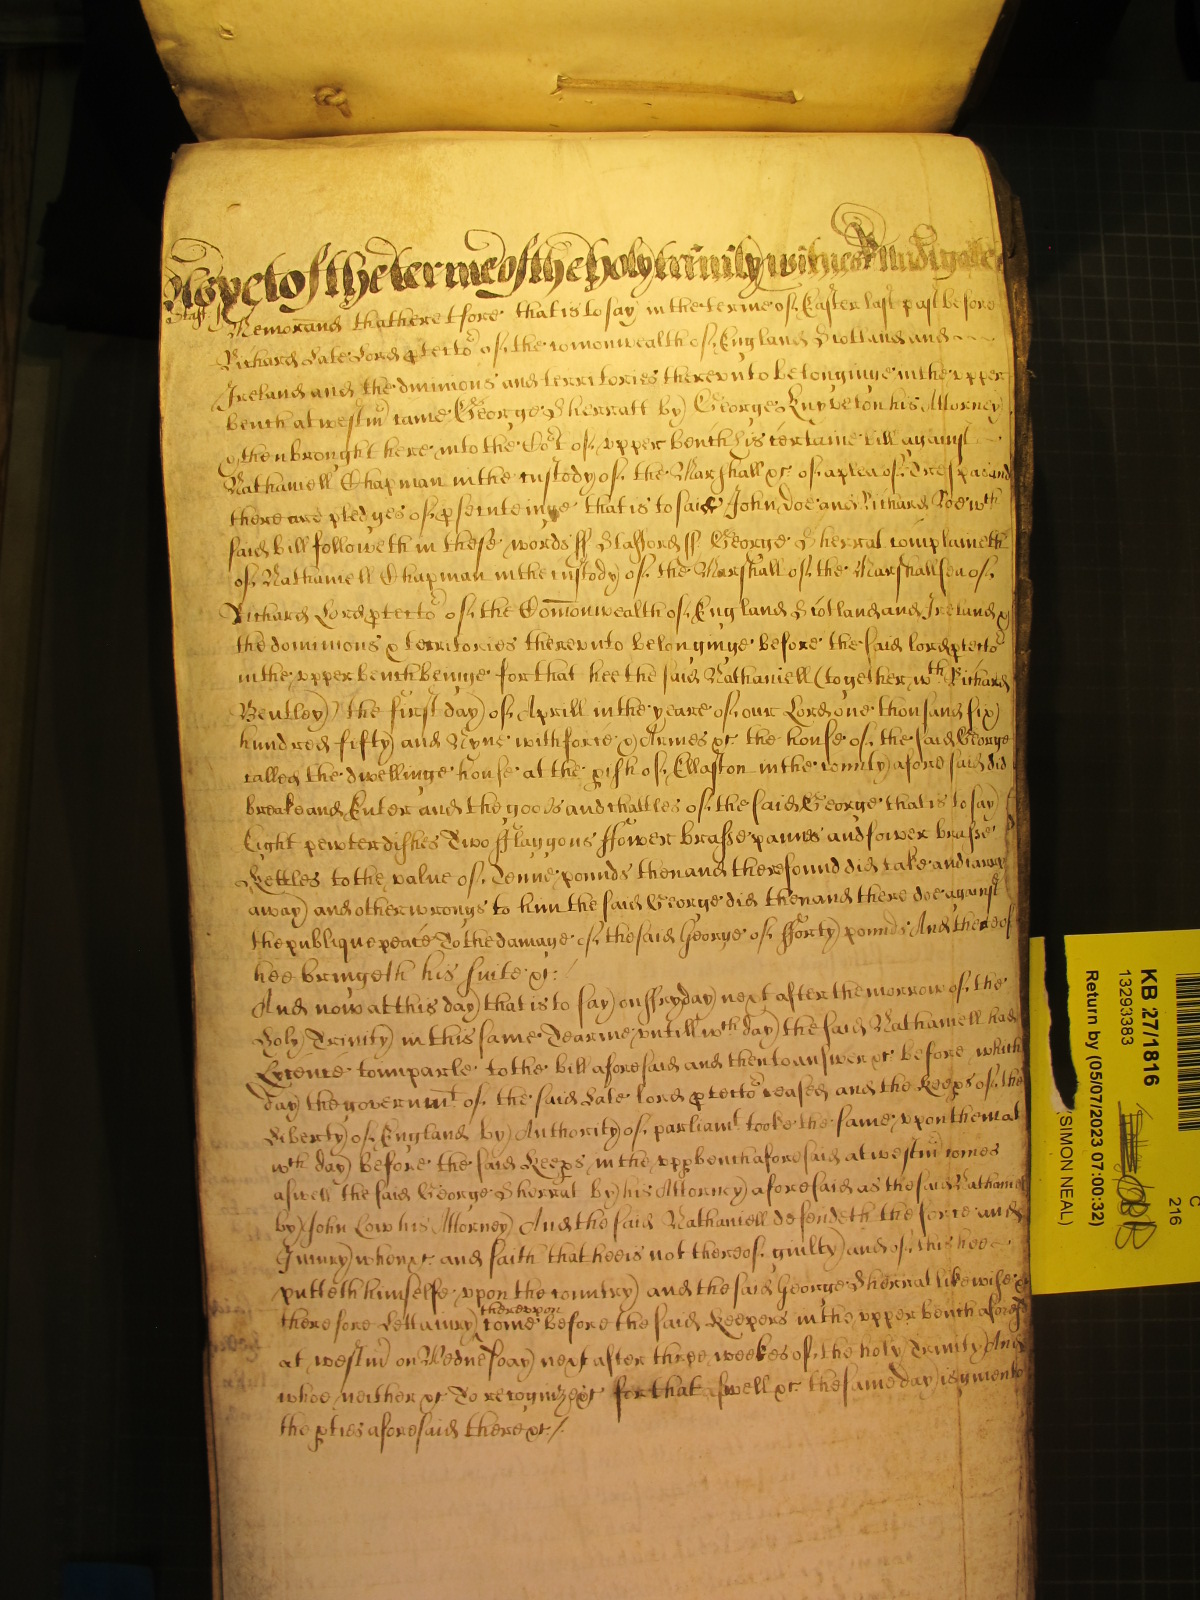 As yet of the terme of the holy trinity witnes R Nudigate
Staff ss Memorand that heretofore that is to say in the terme of Easter last past before
Richard Late Lord ꝓtector of the comonwealth of England Scotland and
Ireland and the dminions and territories therevnto belonginge in the vpper
bench at westm̄ came George Sherratt by George Knyveton his Attorney
& then brought here into the Cort of vpper bench his certaine bill against
Nathaniell Chapman in the custody of the Marshall &c of a plea of Trespas and
there are pledges of ꝓsecuteinge that is to saie John doe and Richard Roe wch
said bill followeth in these words ss Stafford ss George Sherrat complaineth
of Nathaniell Chapman in the custody of the Marshall of the Marshallsea of
Richard Lord ꝓtector of the Com̄onwealth of England Scotland and Ireland &
the dominions & territories therevnto belonginge before the said lord ꝓtector
in the vpper bench beinge for that hee the said Nathaniell (together wth Richard
Bentley) the first day of Aprill in the yeare of our Lord one thousand six
hundred fifty and Nyne with force & Armes &c the house of the said George
called the dwellinge house at the ꝑish of Ellaston in the county aforesaid did
breake and Enter and the goods and chattles of the said George that is to say
Eight pewter dishes Two fflaggons ffower brasse panns and fower brasse
Kettles to the value of Tenne pounds then and there found did take and carry
away and other wrongs to him the said George did then and there doe against
the publique peace To the damage of the said George of fforty pounds And thereof
hee bringeth his suite &c:/
And now at this day that is to say on ffryday next after the morrow of the
Holy Trinity in this same Tearme vntill wch day the said Nathaniell had
Lycence to imparle to the bill aforesaid and then to answer &c before which
day the governmt of the said Late lord ꝓtector ceased and the Keepers of the
Liberty of England by Authority of parliamt tooke the same vpon them at
wch day before the said Keeps in the vppbench aforesaid at westm̄ comes
aswell the said George Sherrat by his Attorney aforesaid as the said Nathaniell
by John Low his Attorney And the said Nathaniell defendeth the force and
Iniury when &c and saith that hee is not thereof guilty and of this hee
putteth himselfe vpon the country and the said George Sherrat likewise &c
therefore Lett a iury therevpon come before the said Keepers in the vpper bench aforesd
at westm̄ on Wednesday next after three weekes of the holy Trinity And
whoe neither &c To recognize &c for that aswell &c the same day is given to
the ꝑties aforesaid there &c/
KB 27/1816
13293383
Return by (05/07/2023 07:00:32)
(SIMON NEAL)
C
216